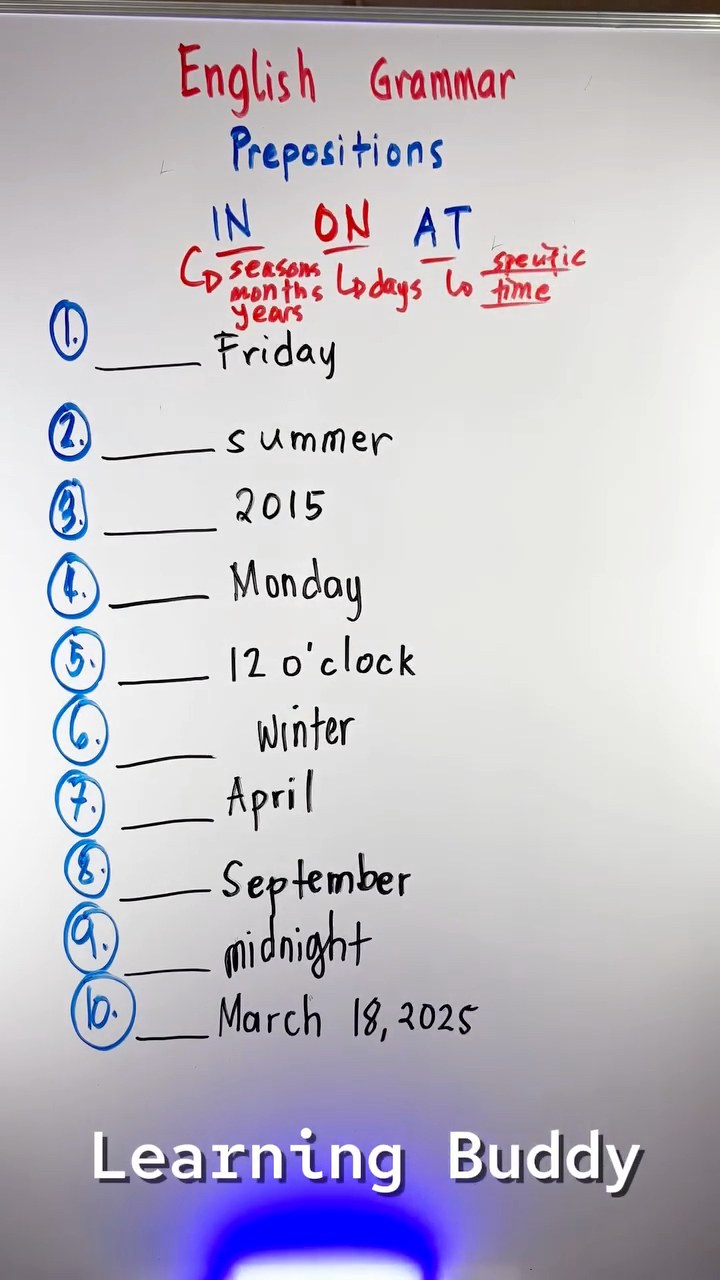 English Grammar
Prepositions
IN ON AT
seasons
months
years
days
specific
time
1. ____ Friday
2. ____ summer
3. ____ 2015
4. ____ Monday
5. ____ 12 o'clock
6. ____ Winter
7. ____ April
8. ____ September
9. ____ midnight
10. ____ March 18, 2025
Learning Buddy